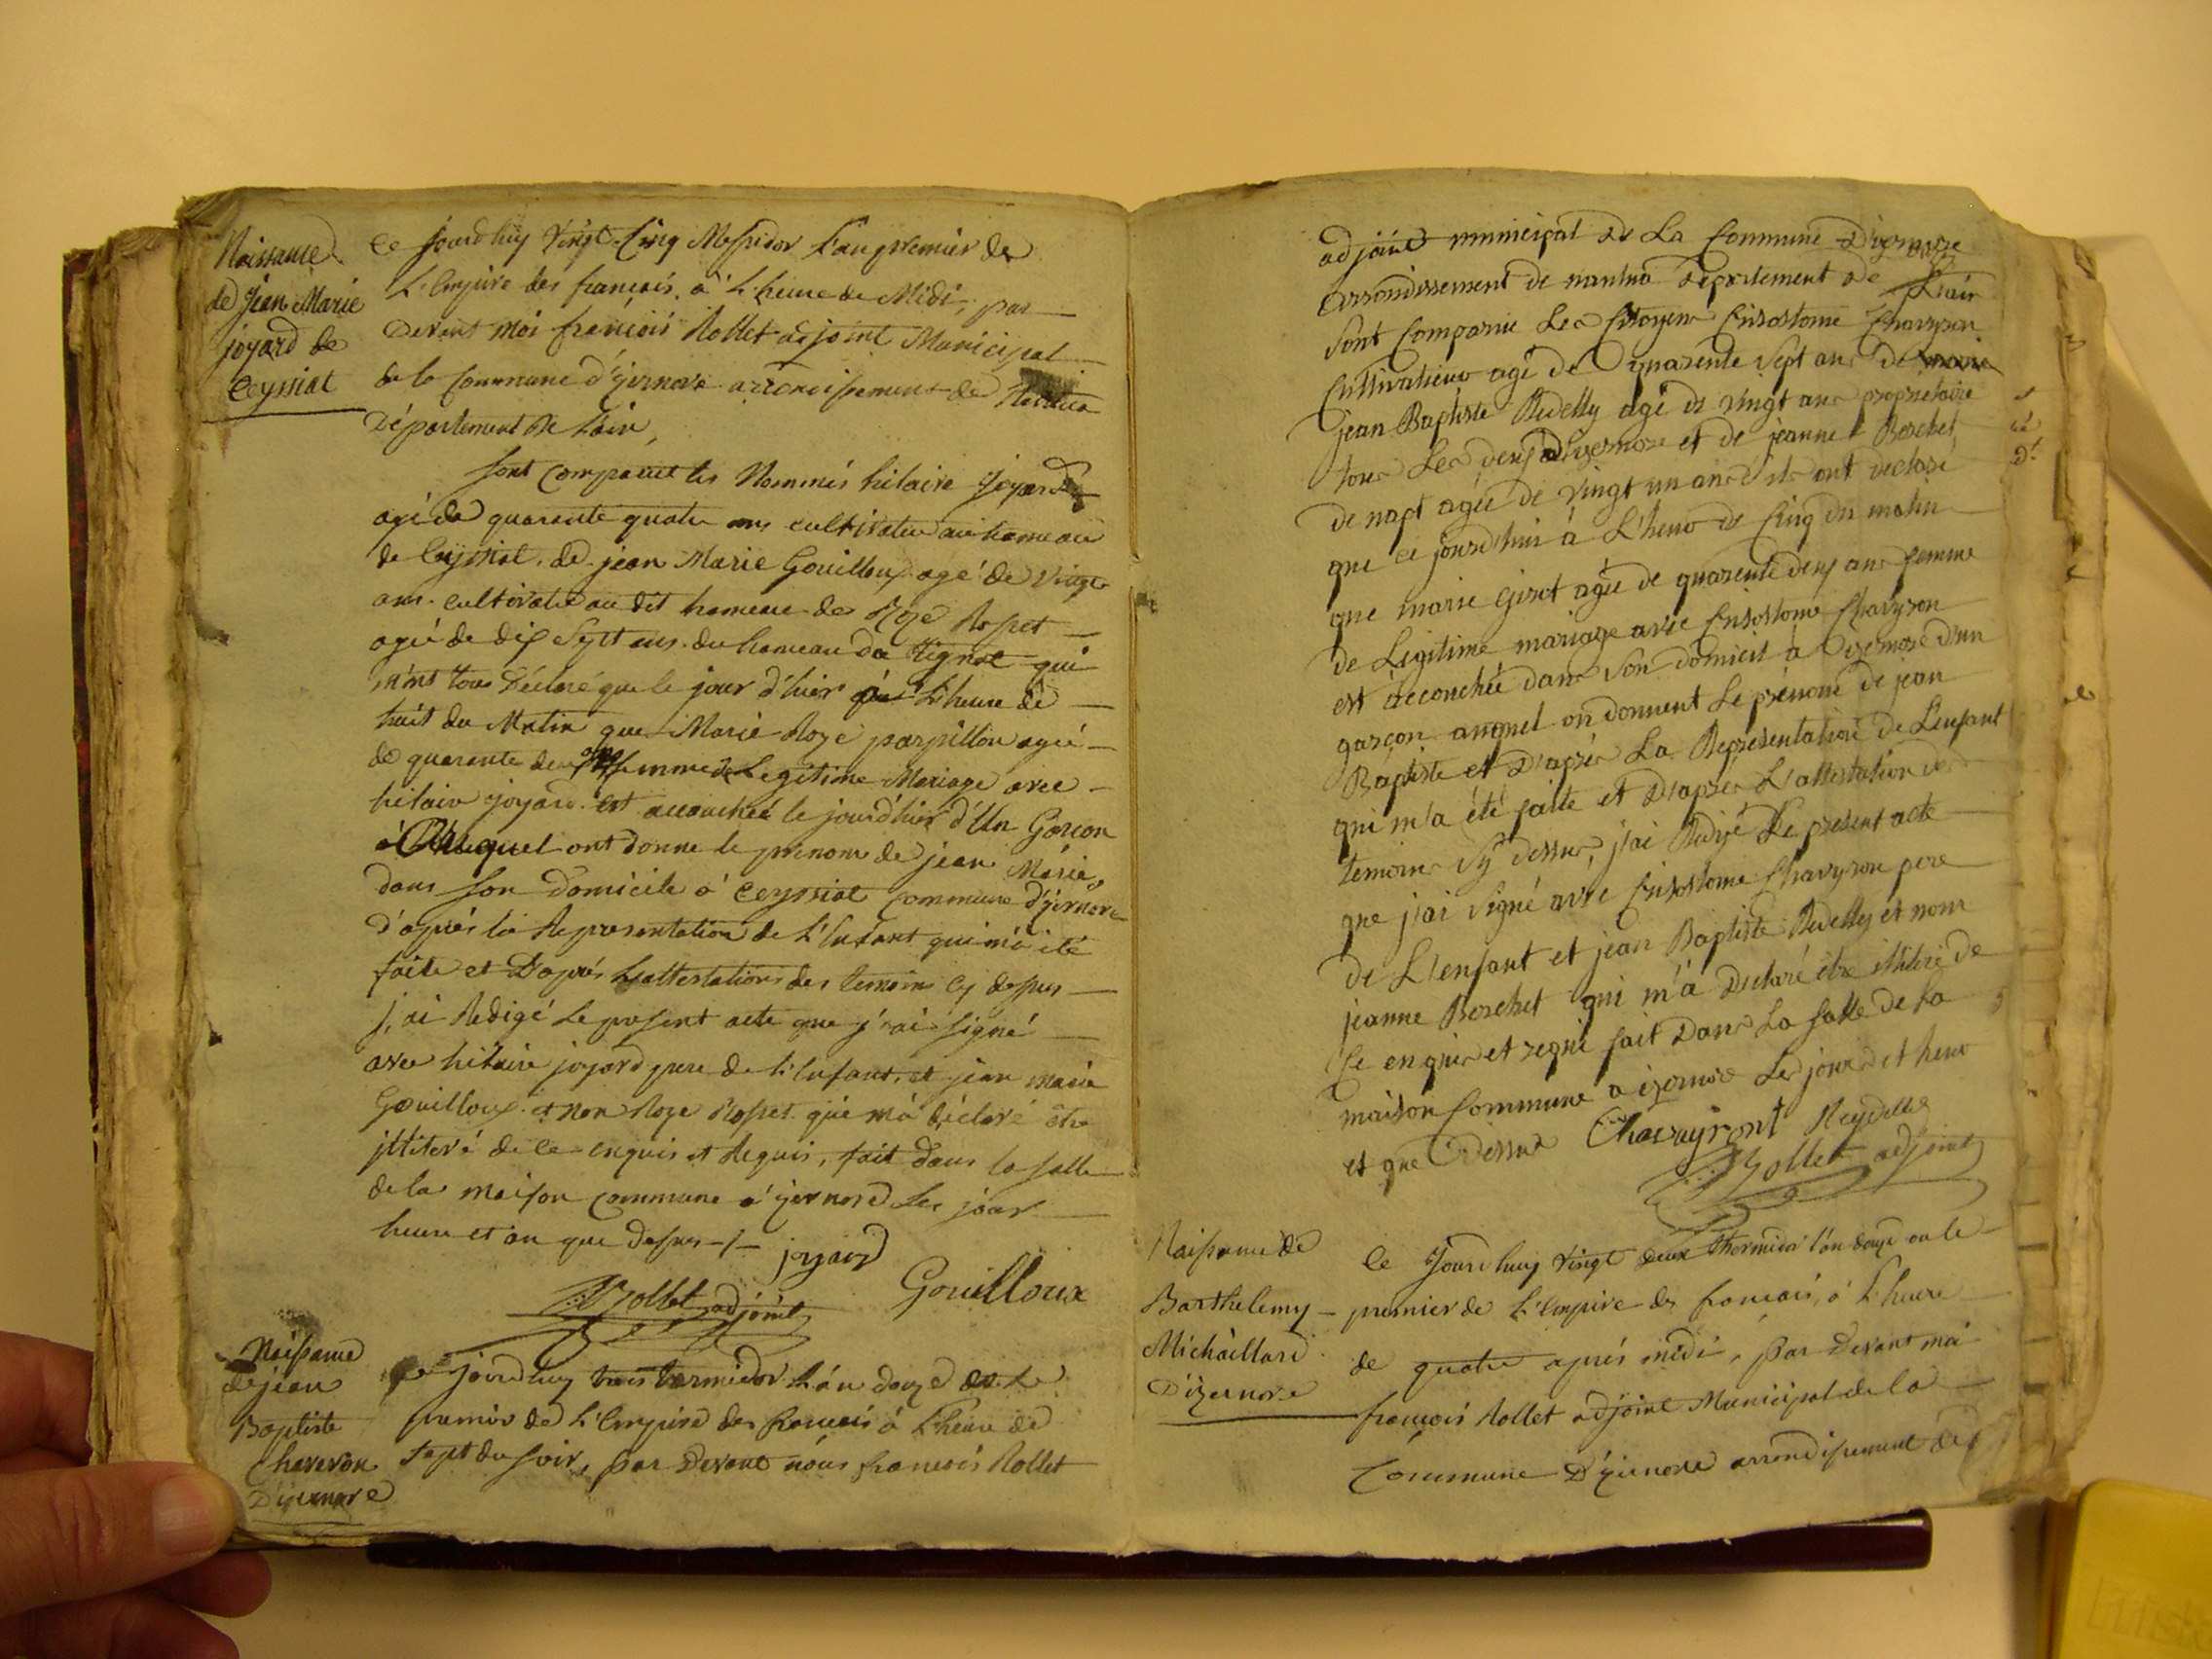 Naissance
de Jean Marie
joyard de
Ceyssiat
Ce jourdhuy vingt-Cinq Messidor L'an premier de
L'Empire des francais, à L'heure de Midi, par
Devant moi francois Rollet adjoint Municipal
de la Commune d'yzernore arrondissement de Nantua
Département de L'ain,
sont comparut les Nommés hilaire joyard
agé de quarente quatre ans cultivateur au hameau
de Ceyssiat, de jean Marie Gouilloux agé de vingt
ans cultivateur au dit hameau de Roze Rosset
agée de dix Sept ans du hameau de Tignat qui
m'ont tous Déclaré que le jour d'hier à L'heure de
huit du Matin que Marie Roze parpillon agée
de quarente deux ans femme de Legitime Mariage avec
hilaire joyard est accouchée le jourd'hier d'Un Garcon
Auquel ont donné le prenom de jean Marie
dans son Domicile à Ceyssiat Commune d'yzernore
d'après la Representation de L'Enfant qui m'a été
faite et D'après L'attestation des temoins cy dessus
j'ai Redigé Le present acte que j'ai signé
avec hilaire joyard pere de L'Enfant, et jean marie
Gouilloux et non Roze Rosset qui m'a déclaré etre
jlliteré de ce enquis et Requis, fait dans la salle
de la maison commune à yzernore Les jour
heure et an que dessus
joyard
Rollet adjoint
Gouilloux
Naissance
de jean
Baptiste
Chaveron
D'yzernore
Ce jourdhuy trois termidor L'an douze ou le
premier de L'Empire des francois à L'heure de
sept du soir, par Devant nous francois Rollet
adjoint municipal de La Commune D'izernore
arrondissement de nantua Département de L'ain
sont Comparue Les Citoyens Crisostome Chavyron
Cultivateur agé de quarente Sept ans de
jean Baptiste Reidelly agé de vingt ans proprietaire
tous Les deux d'izernore et de jeanne Berchet
de napt agée de vingt un ans ils ont declaré
que ce jourd'hui à L'heure de Cinq du matin
que marie girot agée de quarente deux ans femme
de Legitime mariage avec Crisostome Chavyron
est accouchée dans son domicil à izernore d'un
garçon auquel on donnent Le prénom de jean
Baptiste et D'après La Representation de L'enfant
qui m'a été faite et D'après L'attestation des
temoins sy dessus, j'ai Redigé Le present acte
que j'ai signé avec Crisostome Chavyron pere
de L'enfant et jean Baptiste Reidelly et non
jeanne Berchet qui m'a Declaré etre illiteré de
Ce enquis et requi fait Dans La salle de La
maison Commune a izernore Les jour et heure
et que Dessus
Chavayront Reydellet
Rollet adjoint
Naissance de
Barthelemy
Michaillard
D'izernore
Ce Jourdhuy vingt deux thermidor l'an douze ou le
premier de L'Empire des francais, à L'heure
de quatre après midi, par Devant moi
francois Rollet adjoint Municipal de la
Commune D'yzernore arrondissement de